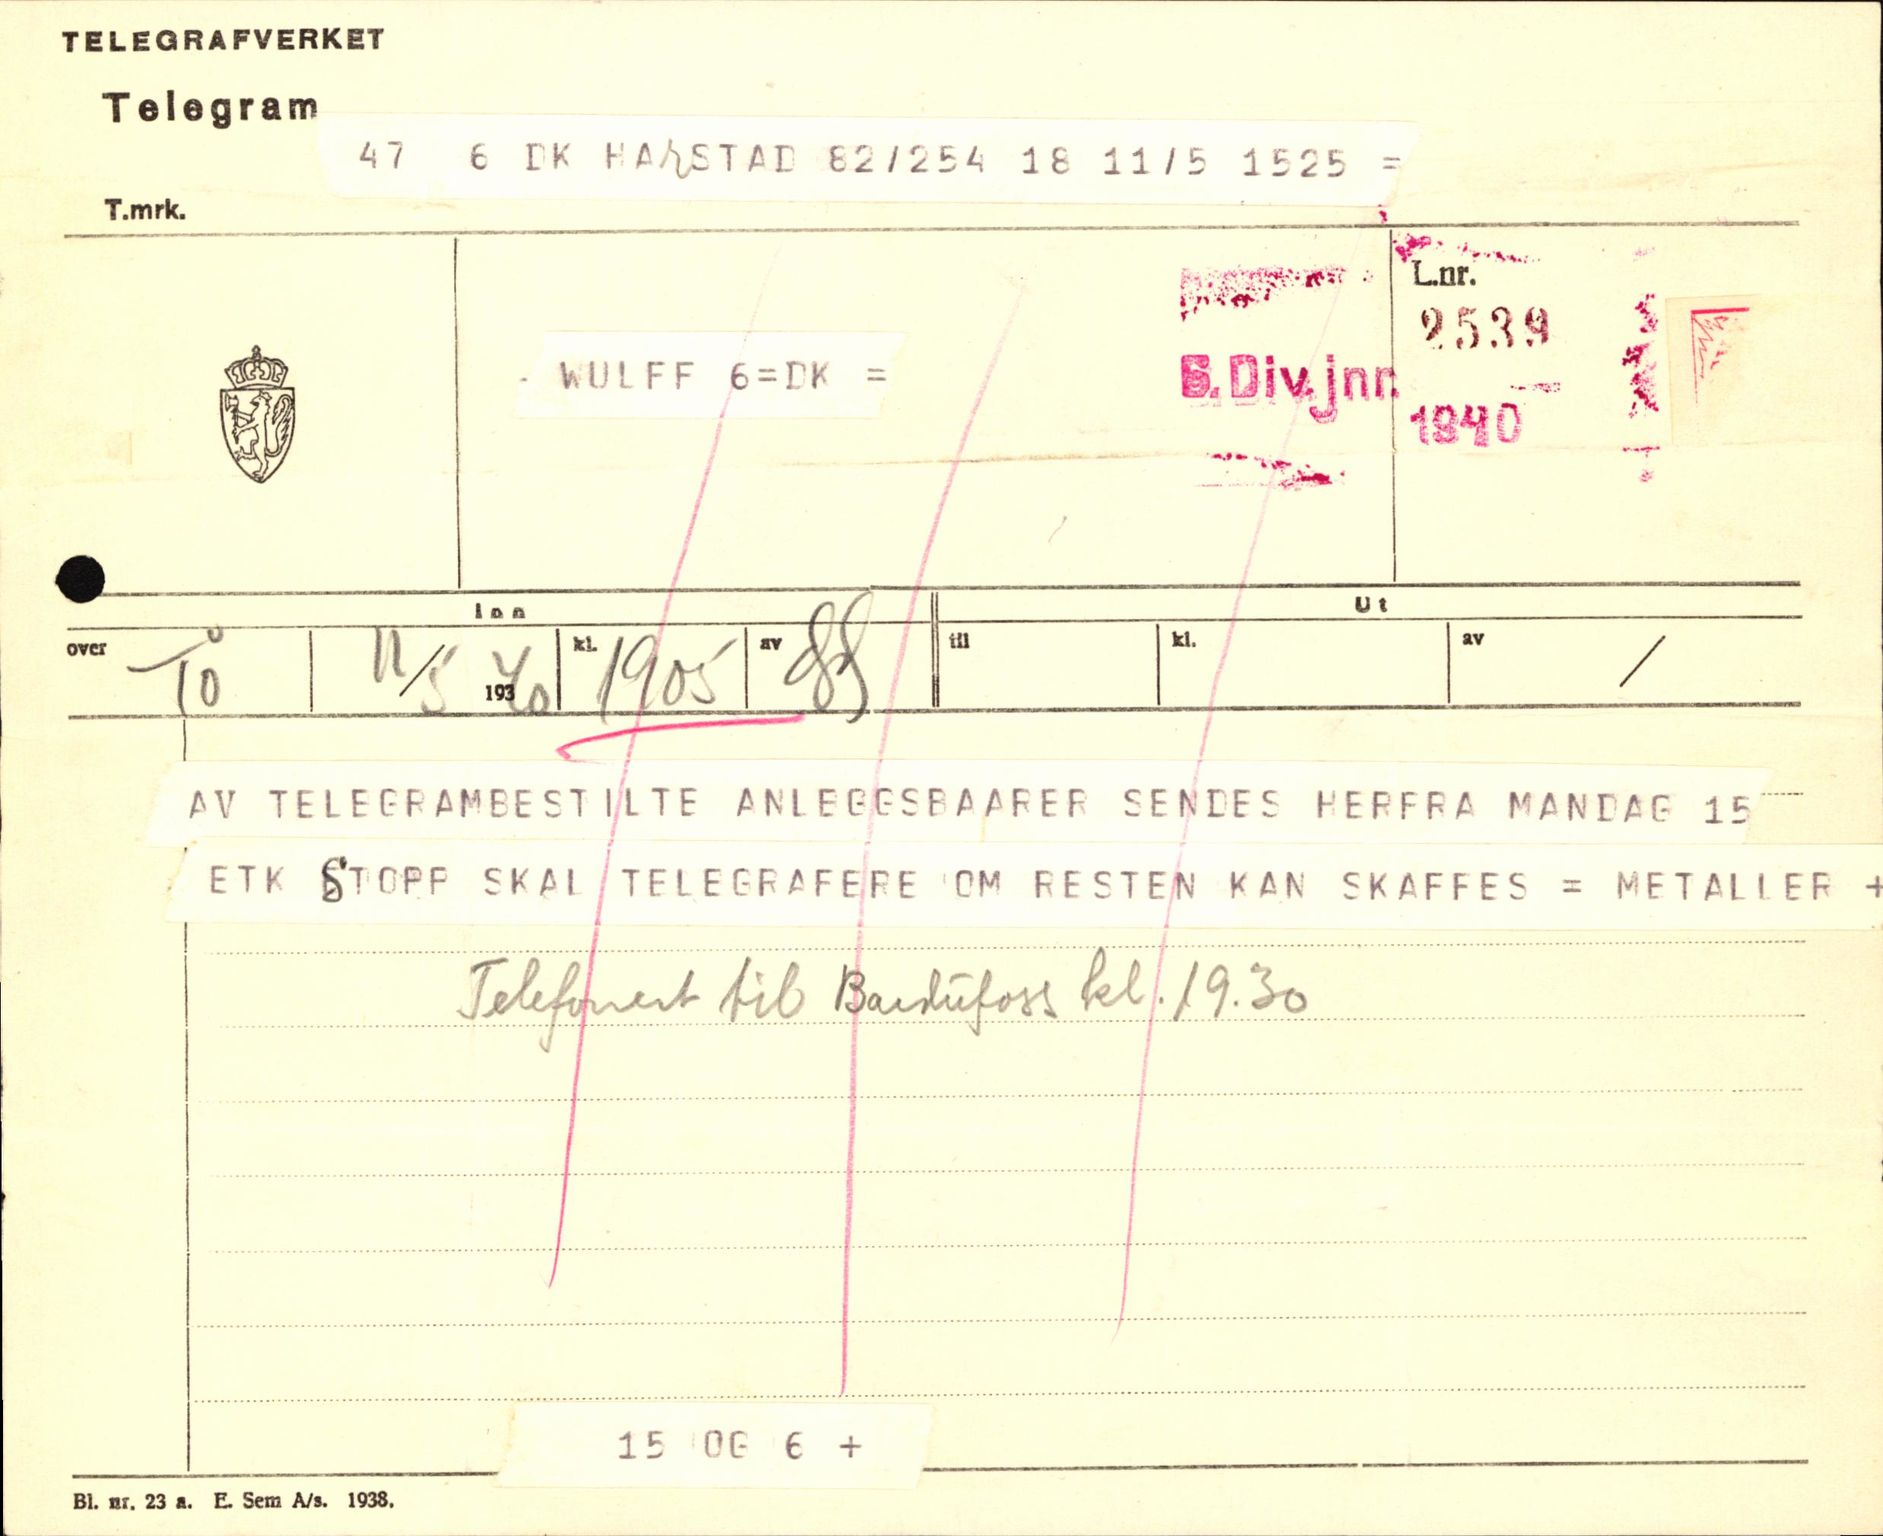 TELEGRAFVERKET
Telegram
47 6 DK HARSTAD 82/254 18 11/5 1525 =
T.mrk.
L.nr.
2539
WULFF 6=DK =
6. Div. jnr.
1940
Inn
Ut
over Tö 11/5 1940 kl. 1905 av
til kl. av /
AV TELEGRAMBESTILTE ANLEGGSBAARER SENDES HERFRA MANDAG 15
ETK STOPP SKAL TELEGRAFERE OM RESTEN KAN SKAFFES = METALLER +
Telefonert til Bardufoss kl. 19.30
15 OG 6 +
Bl. nr. 23 a. E. Sem A/s. 1938.